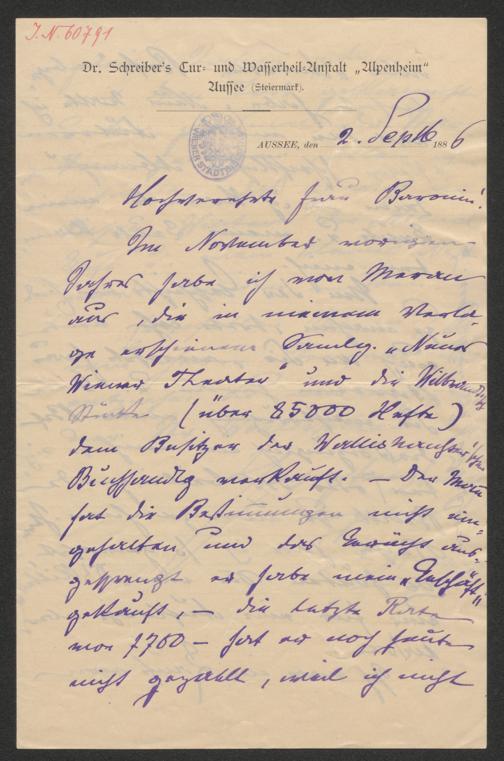 I. N. 60791
Dr. Schreiber's Cur- und Wasserheil-Anstalt „Alpenheim“
Aussee (Steiermark).
AUSSEE, den 2. Septb 1886
Hochverehrte Frau Baronin!
Im November vorigen
Jahres habe ich von Meran
aus, die in meinem Verla-
ge erschienene Samlg. „Neues
Wiener Theater“ und die Wilbrandt'sch
Stücke (über 85000 Hefte)
dem Besitzer der Wallishausser'schen
Buchhandlg verkauft. — Der Mann
hat die Bestimmungen nicht ein-
gehalten und das Gerücht aus-
gesprengt er habe mein „Geschäft“
gekauft, — die letzte Rate
von 7700 — hat er noch heute
nicht gezahlt, weil ich nicht